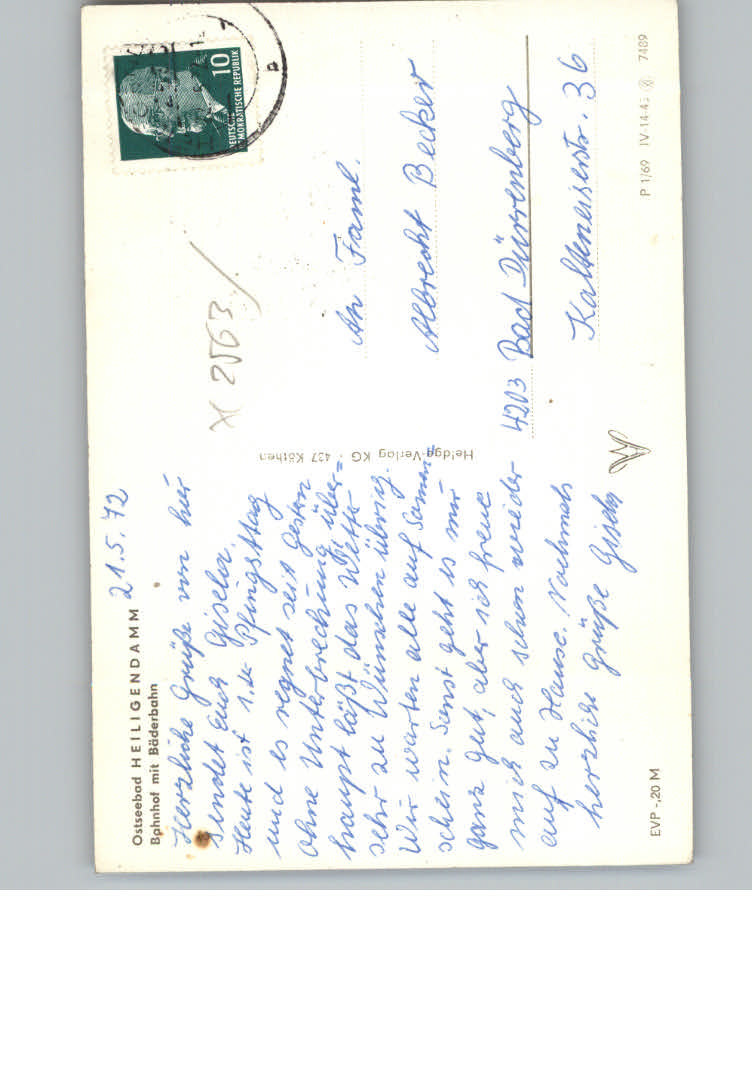 Ostseebad HEILIGENDAMM
Bahnhof mit Bäderbahn
21.5.72
Herzliche Grüße von hier
sendet Euch Gisela.
Heute ist 1. Pfingsttag
und es regnet seit gestern
ohne Unterbrechung. Über=
haupt läßt das Wetter
sehr zu Wünschen übrig.
Wir warten alle auf Sonnen=
schein. Sonst geht es mir
ganz gut, aber ich freue
mich auch schon wieder
auf zu Hause. Nochmals
herzliche Grüße Gisela
EVP -,20 M
Heldge-Verlag KG · 437 Köthen
10
DEUTSCHE
DEMOKRATISCHE REPUBLIK
X 2563
An Faml.
Albrecht Becker
4203 Bad Dürrenberg
36
P 1/69 IV-14-45 7489